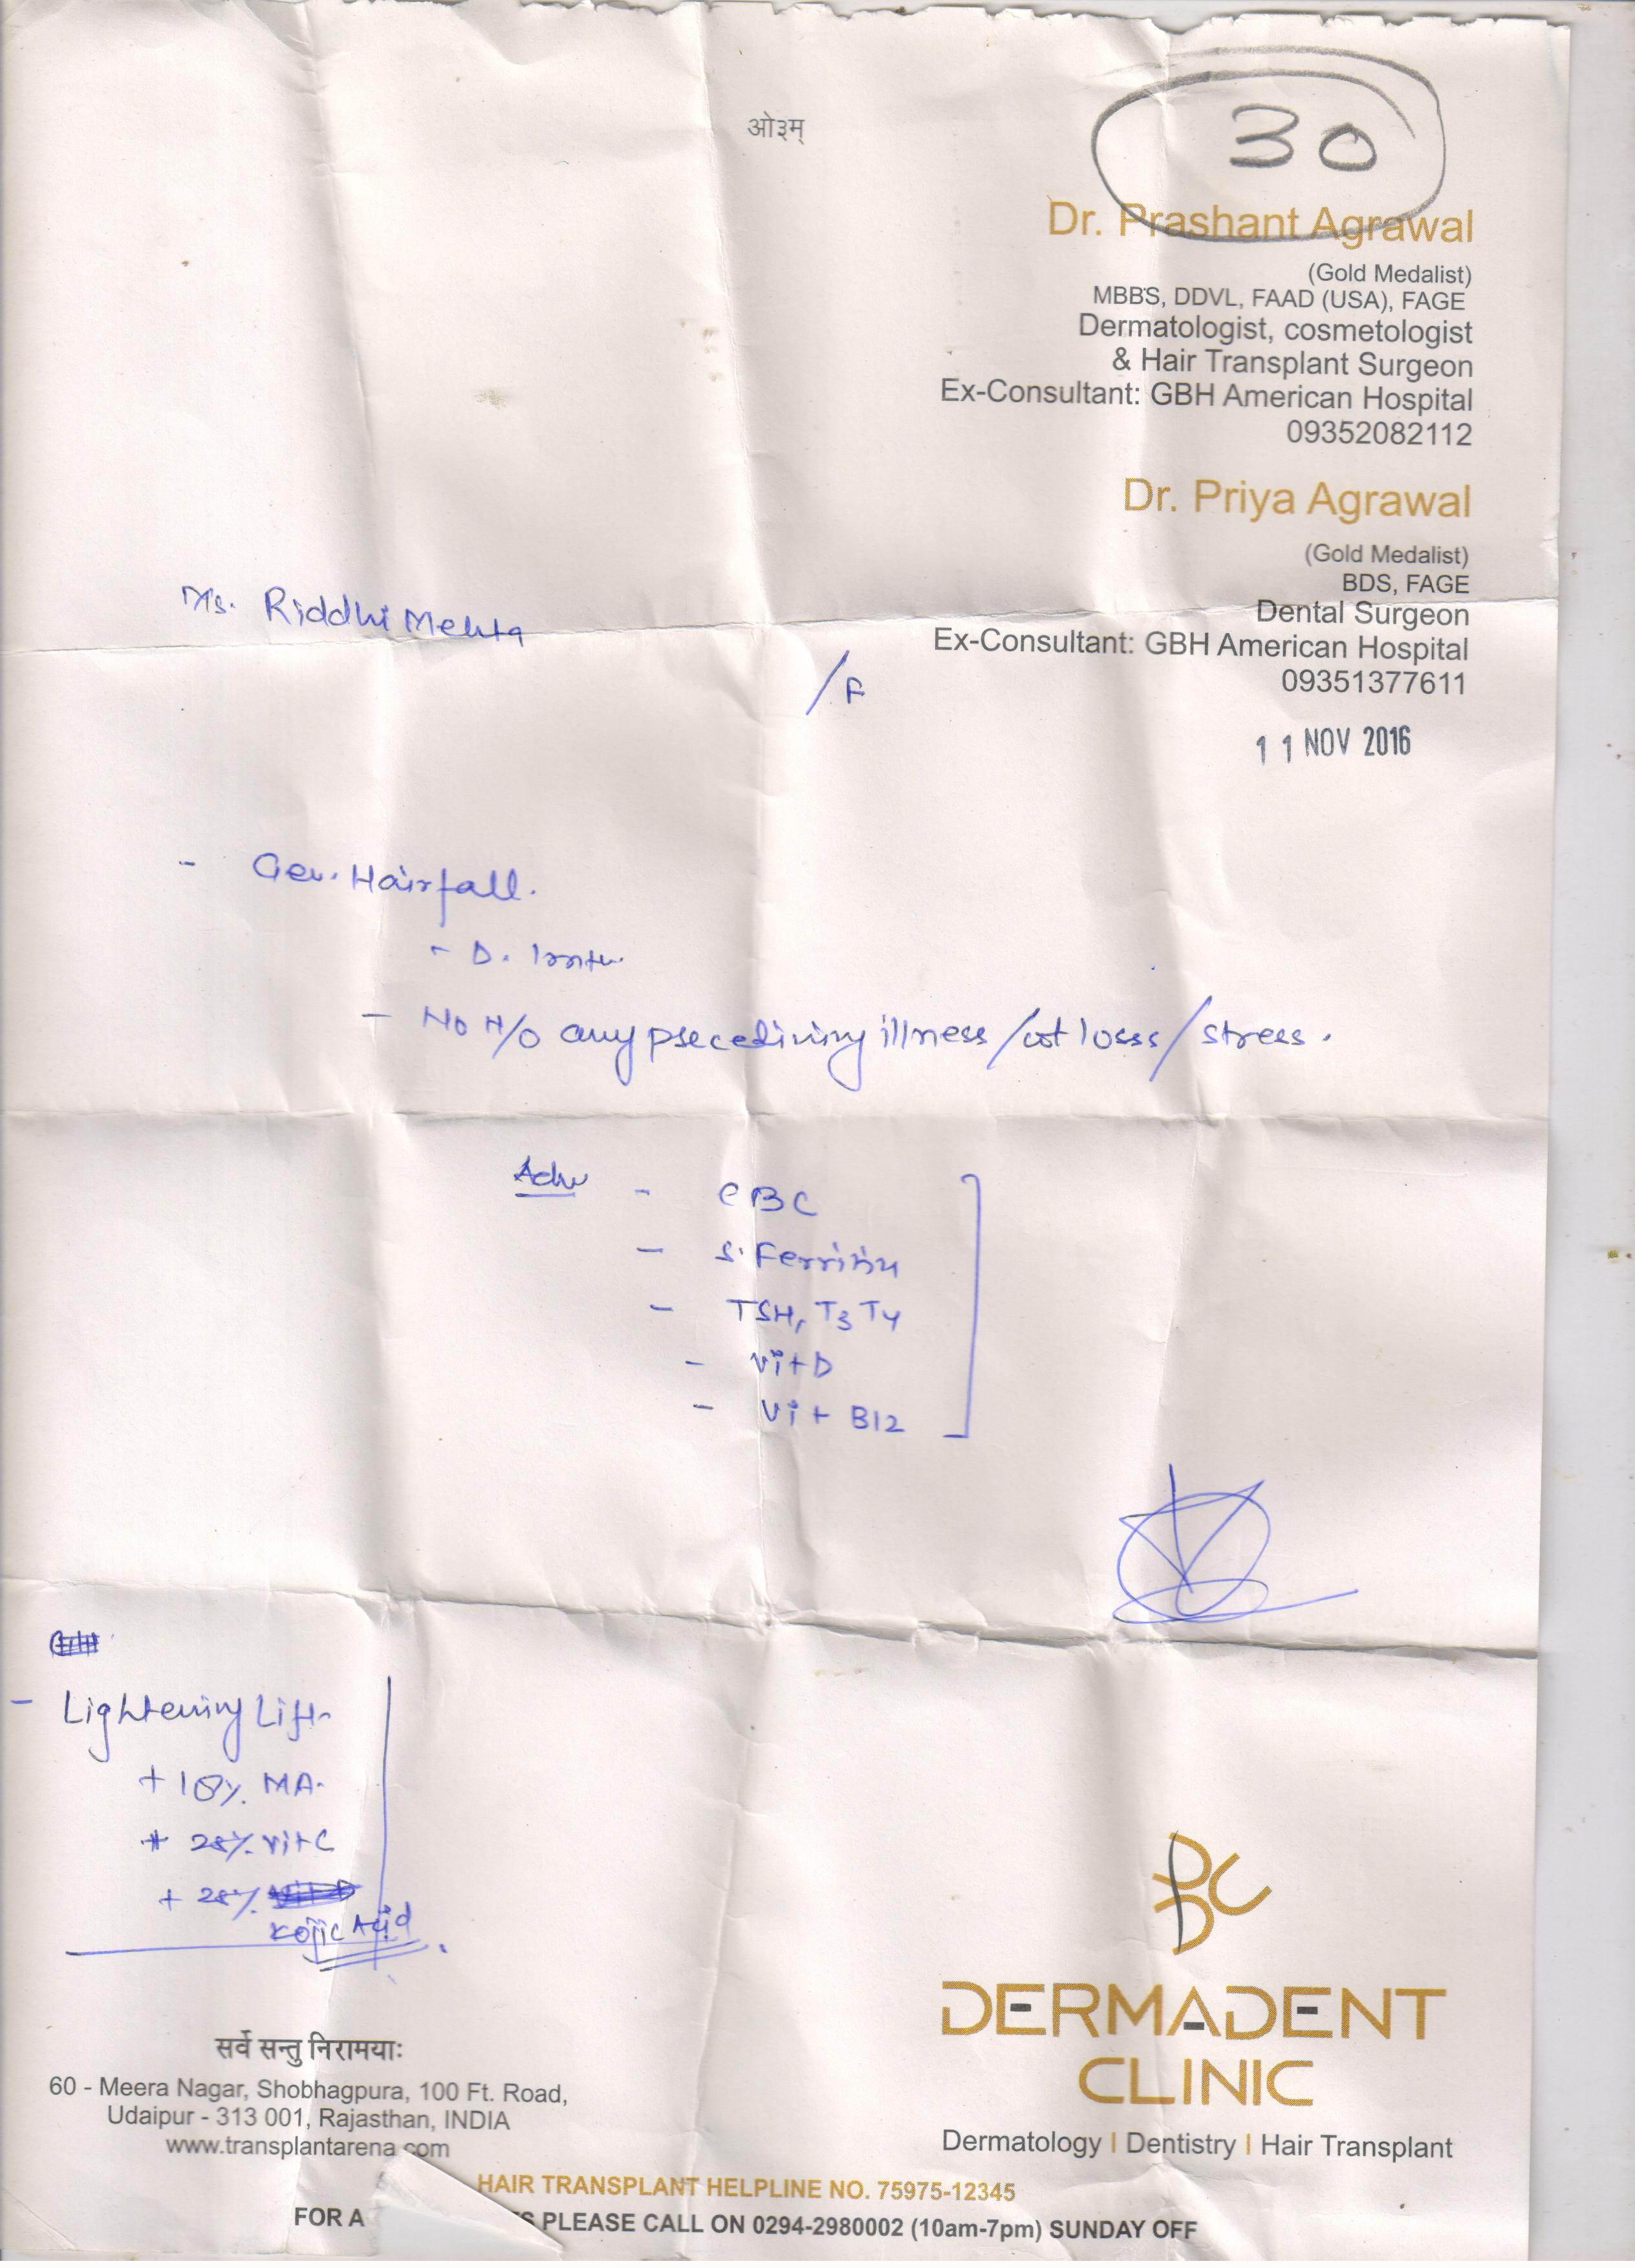 ओ३म्
30
Dr. Prashant Agrawal
(Gold Medalist)
MBBS, DDVL, FAAD (USA), FAGE
Dermatologist, cosmetologist
& Hair Transplant Surgeon
Ex-Consultant: GBH American Hospital
09352082112
Dr. Priya Agrawal
(Gold Medalist)
BDS, FAGE
Dental Surgeon
Ex-Consultant: GBH American Hospital
09351377611
Ms. Riddhi Mehta
/F
11 NOV 2016
- Gen. Hairfall.
- D.
- No H/O any preceding illness/wt losss/stress.
Adv - CBC
- S. Ferritin
- TSH, T3 T4
- Vit D
- Vit B12
- Lightening Lift
+ 10% MA.
+ 20% Vit C
+ 20%
Kojic Acid
सर्वे सन्तु निरामयाः
60 - Meera Nagar, Shobhagpura, 100 Ft. Road,
Udaipur - 313 001, Rajasthan, INDIA
www.transplantarena.com
DERMADENT
CLINIC
Dermatology | Dentistry | Hair Transplant
HAIR TRANSPLANT HELPLINE NO. 75975-12345
FOR A PLEASE CALL ON 0294-2980002 (10am-7pm) SUNDAY OFF